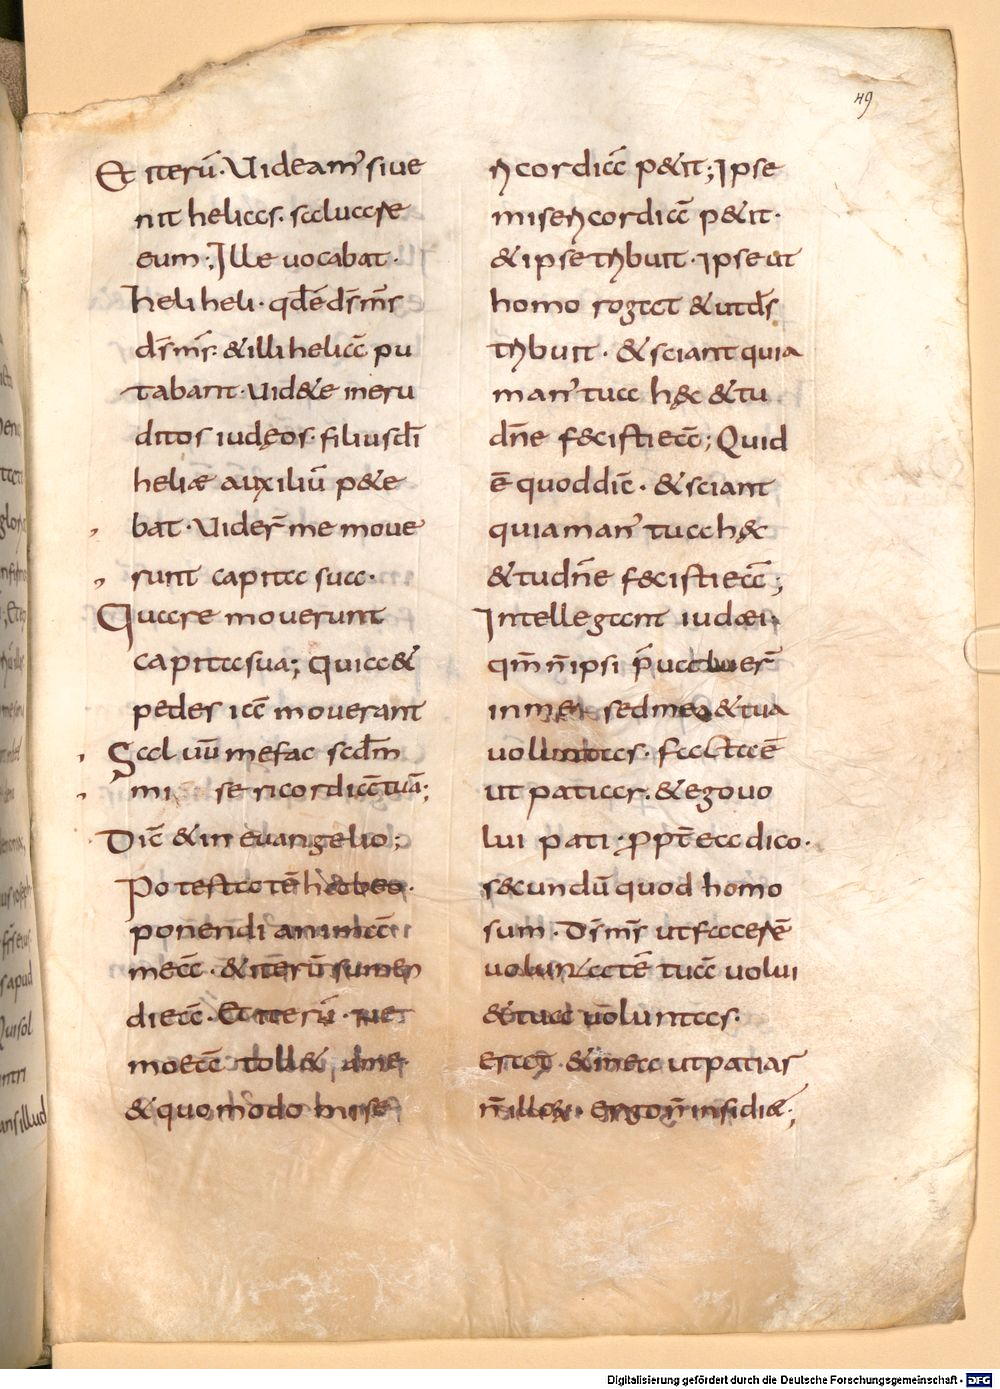 49
Et iterū· Uideam' sive
nit helias· saluare
eum; Ille vocabat·
heli heli· qd̄ ē ds̄ ms̄
ds̄ ms̄· & illi heliā pu
tabant· Uid&e ineru
ditos iudęos· filius dī
heliæ auxiliū p&e
bat· Uider̄ me move
runt capita sua·
Quare moverunt
capita sua; quia &
pedes iā moverant
Sal uū me fac scdm̄
mi se ricordiā tuā;
Dič & in evangelio;
Potestatē habeo·
ponendi animā
meā· & iterū sumen
dieā· Et iterū·
moeā toll& dn̄e
& quomodo mise
ricordiā p&it; Ipse
misericordiā p&it·
& ipse tribuit· Ipse ut
homo rog&ct & ut ds̄
tribuit· & sciant quia
man' tua hęc & tu
dn̄e fecisti eā; Quid
ē quod dič· & sciant
quia man' tua hęc
& tu dn̄e fecisti eā;
Intellegant iudæi·
qm̄ n̄ ipsi p̄valuer̄
in me sed mea & tua
voluntas· facta ē
ut patiar· & ego vo
lui pati· ꝓpt̄ ea dico·
secundū quod homo
sum· Ds̄ ms̄ ut facerē
voluntatē tuā volui
& tua voluntas·
& mea ut patiar
n̄ illoꝝ· ergo n̄ insidiæ;
Digitalisierung gefördert durch die Deutsche Forschungsgemeinschaft - DFG